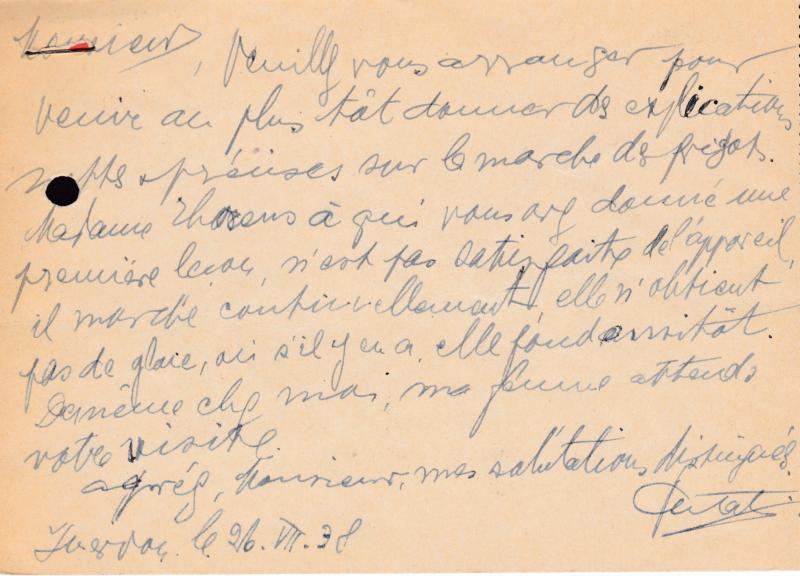 Monsieur, Veuillez vous arranger pour
venir au plus tôt donner des explications
nettes & précises sur la marche des frigos.
Madame à qui vous avez donné une
première leçon, n'est pas satisfaite de l'appareil,
il marche continuellement, elle n'obtient
pas de glace, ou s'il y en a, elle fond aussitôt.
De même chez moi, ma femme attends
votre visite.
agréez, Monsieur, mes salutations distinguées.
Yverdon, le 26. VII. 38